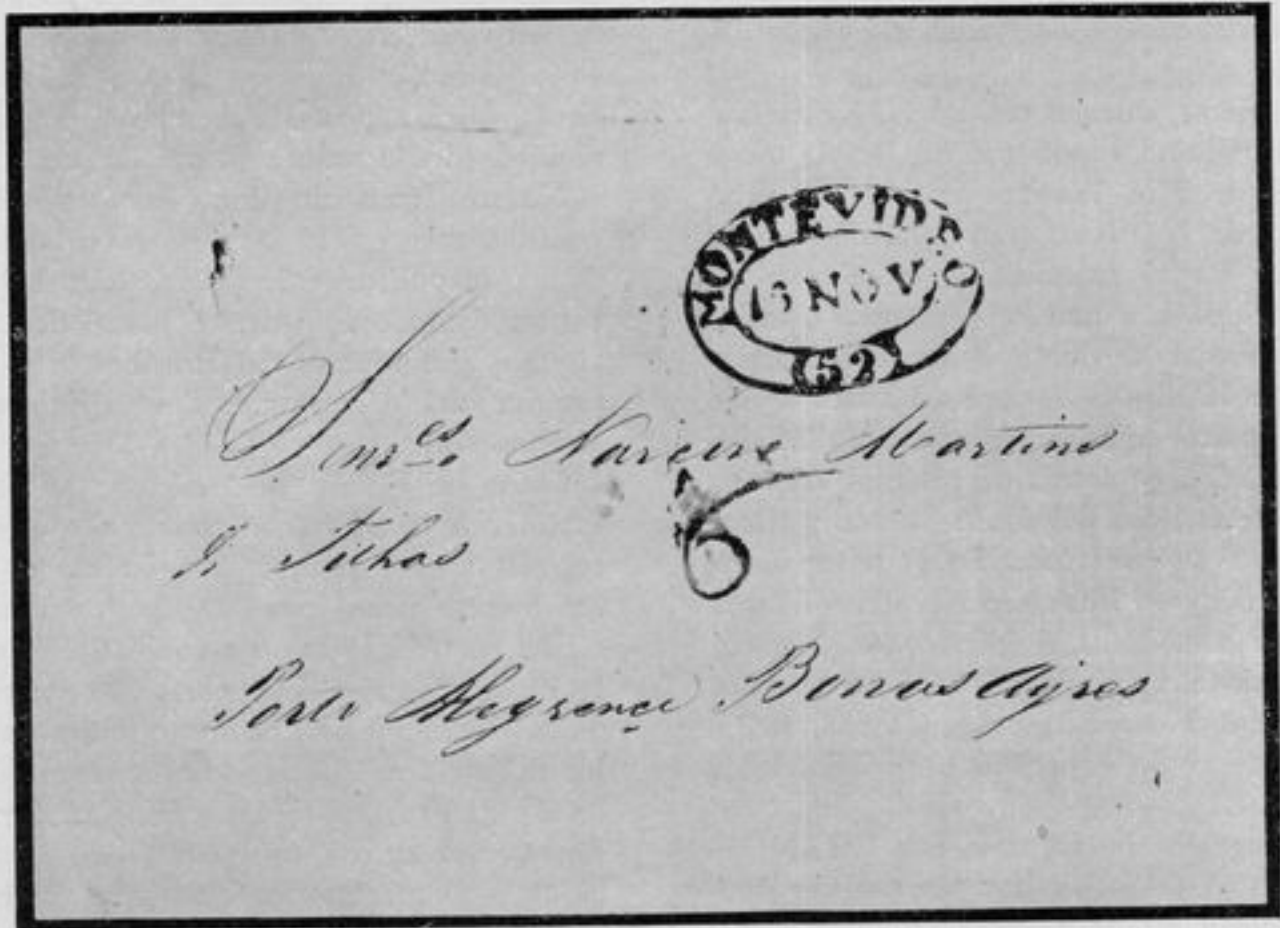 MONTEVIDEO
16 NOV
(52)
Senres Martins
& Filhos
6
Porto Alegrence Buenos Ayres